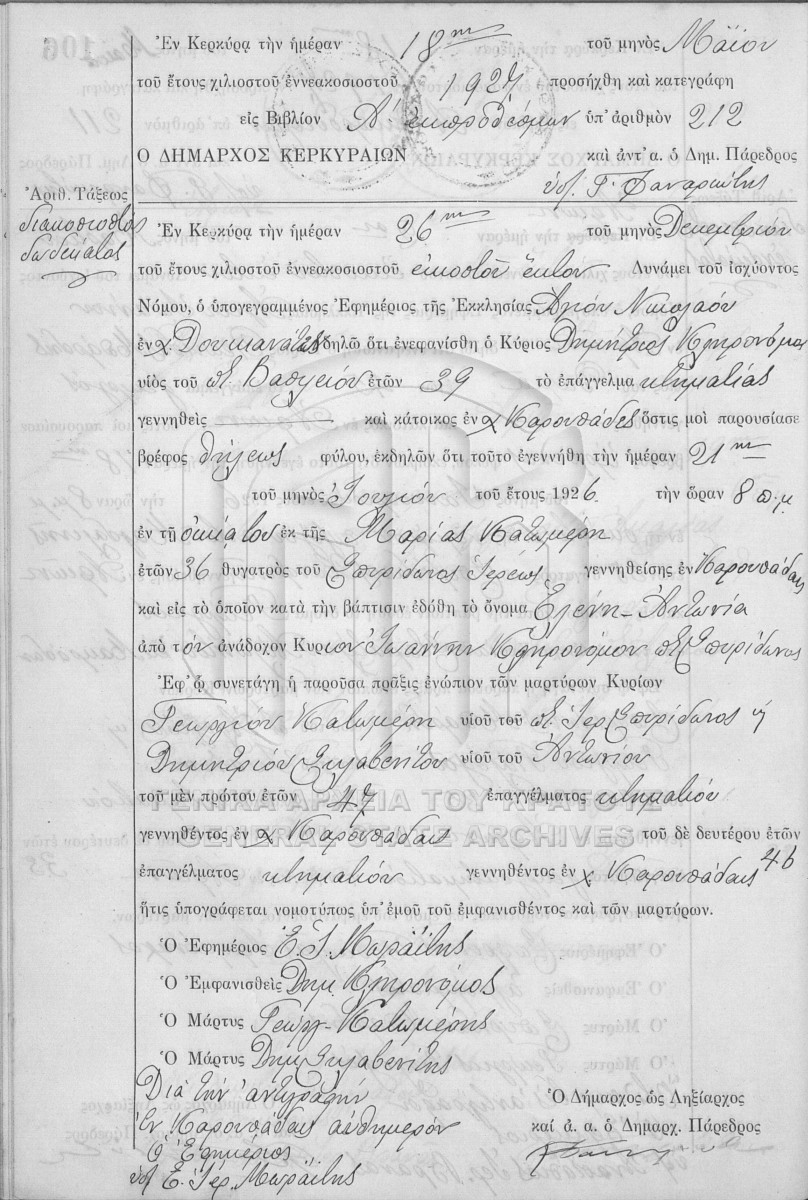 Ἐν Κερκύρᾳ τὴν ἡμέραν 18ην τοῦ μηνὸς Μαΐου
τοῦ ἔτους χιλιοστοῦ ἐννεακοσιοστοῦ 1927 προσήχθη καὶ κατεγράφη
εἰς Βιβλίον Α' ἐκπροθέσμων ὑπ' ἀριθμὸν 212
Ο ΔΗΜΑΡΧΟΣ ΚΕΡΚΥΡΑΙΩΝ καὶ ἀντ' α. ὁ Δημ. Πάρεδρος
ὑπ. Γ. Φαναριώτης
Ἀριθ. Τάξεως
διακοσιοστὸς
δωδέκατος
Ἐν Κερκύρᾳ τὴν ἡμέραν 26ην τοῦ μηνὸς Δεκεμβρίου
τοῦ ἔτους χιλιοστοῦ ἐννεακοσιοστοῦ εἰκοστοῦ ἕκτου Δυνάμει τοῦ ἰσχύοντος
Νόμου, ὁ ὑπογεγραμμένος Ἐφημέριος τῆς Ἐκκλησίας Ἁγίου Νικολάου
ἐν χ. Δουκιανάδες ἐκδηλῶ ὅτι ἐνεφανίσθη ὁ Κύριος Δημήτριος Κληρονόμος
υἱὸς τοῦ ποτ. Βασιλείου ἐτῶν 39 τὸ ἐπάγγελμα κτηματίας
γεννηθεὶς καὶ κάτοικος ἐν χ Καρουσάδες ὅστις μοὶ παρουσίασε
βρέφος θήλεως φύλου, ἐκδηλῶν ὅτι τοῦτο ἐγεννήθη τὴν ἡμέραν 21ην
τοῦ μηνὸς Ἰουλίου τοῦ ἔτους 1926 τὴν ὥραν 8 π.μ
ἐν τῇ οἰκίᾳ του ἐκ τῆς Μαρίας Κατωμέρη
ἐτῶν 36 θυγατρὸς τοῦ Σπυρίδωνος Ἱερέως γεννηθείσης ἐν Καρουσάδαις
καὶ εἰς τὸ ὁποῖον κατὰ τὴν βάπτισιν ἐδόθη τὸ ὄνομα Ἑλένη-Ἀντωνία
ἀπὸ τὸν ἀνάδοχον Κύριον Ἰωάννην Κληρονόμον ποτ. Σπυρίδωνος
Ἐφ' ᾧ συνετάγη ἡ παροῦσα πρᾶξις ἐνώπιον τῶν μαρτύρων Κυρίων
Γεωργίου Κατωμέρη υἱοῦ τοῦ ποτ. Ἱερ. Σπυρίδωνος ἡ
Δημητρίου Συλαβενίτου υἱοῦ τοῦ Ἀντωνίου
τοῦ μὲν πρώτου ἐτῶν 47 ἐπαγγέλματος κτηματίου
ΓΕΝΙΚΑ ΑΡΧΕΙΑ ΤΟΥ ΚΡΑΤΟΥΣ
GENERAL STATE ARCHIVES
γεννηθέντος ἐν χ Καρουσάδαις τοῦ δὲ δευτέρου ἐτῶν
46
ἐπαγγέλματος κτηματίου γεννηθέντος ἐν χ Καρουσάδαις
ἥτις ὑπογράφεται νομοτύπως ὑπ' ἐμοῦ τοῦ ἐμφανισθέντος καὶ τῶν μαρτύρων.
Ὁ Ἐφημέριος Ε. Ι. Μωραΐτης
Ὁ Ἐμφανισθεὶς Δημ. Κληρονόμος
Ὁ Μάρτυς Γεώργ. Κατωμέρης
Ὁ Μάρτυς Δημ. Συλαβενίτης
Διὰ τὴν ἀντιγραφήν
Ἐν Καρουσάδαις αὐθημερόν
Ὁ Ἐφημέριος
ὑπ. Ε. Ἱερ. Μωραΐτης
Ὁ Δήμαρχος ὡς Ληξίαρχος
καὶ ἀ. α. ὁ Δημαρχ. Πάρεδρος